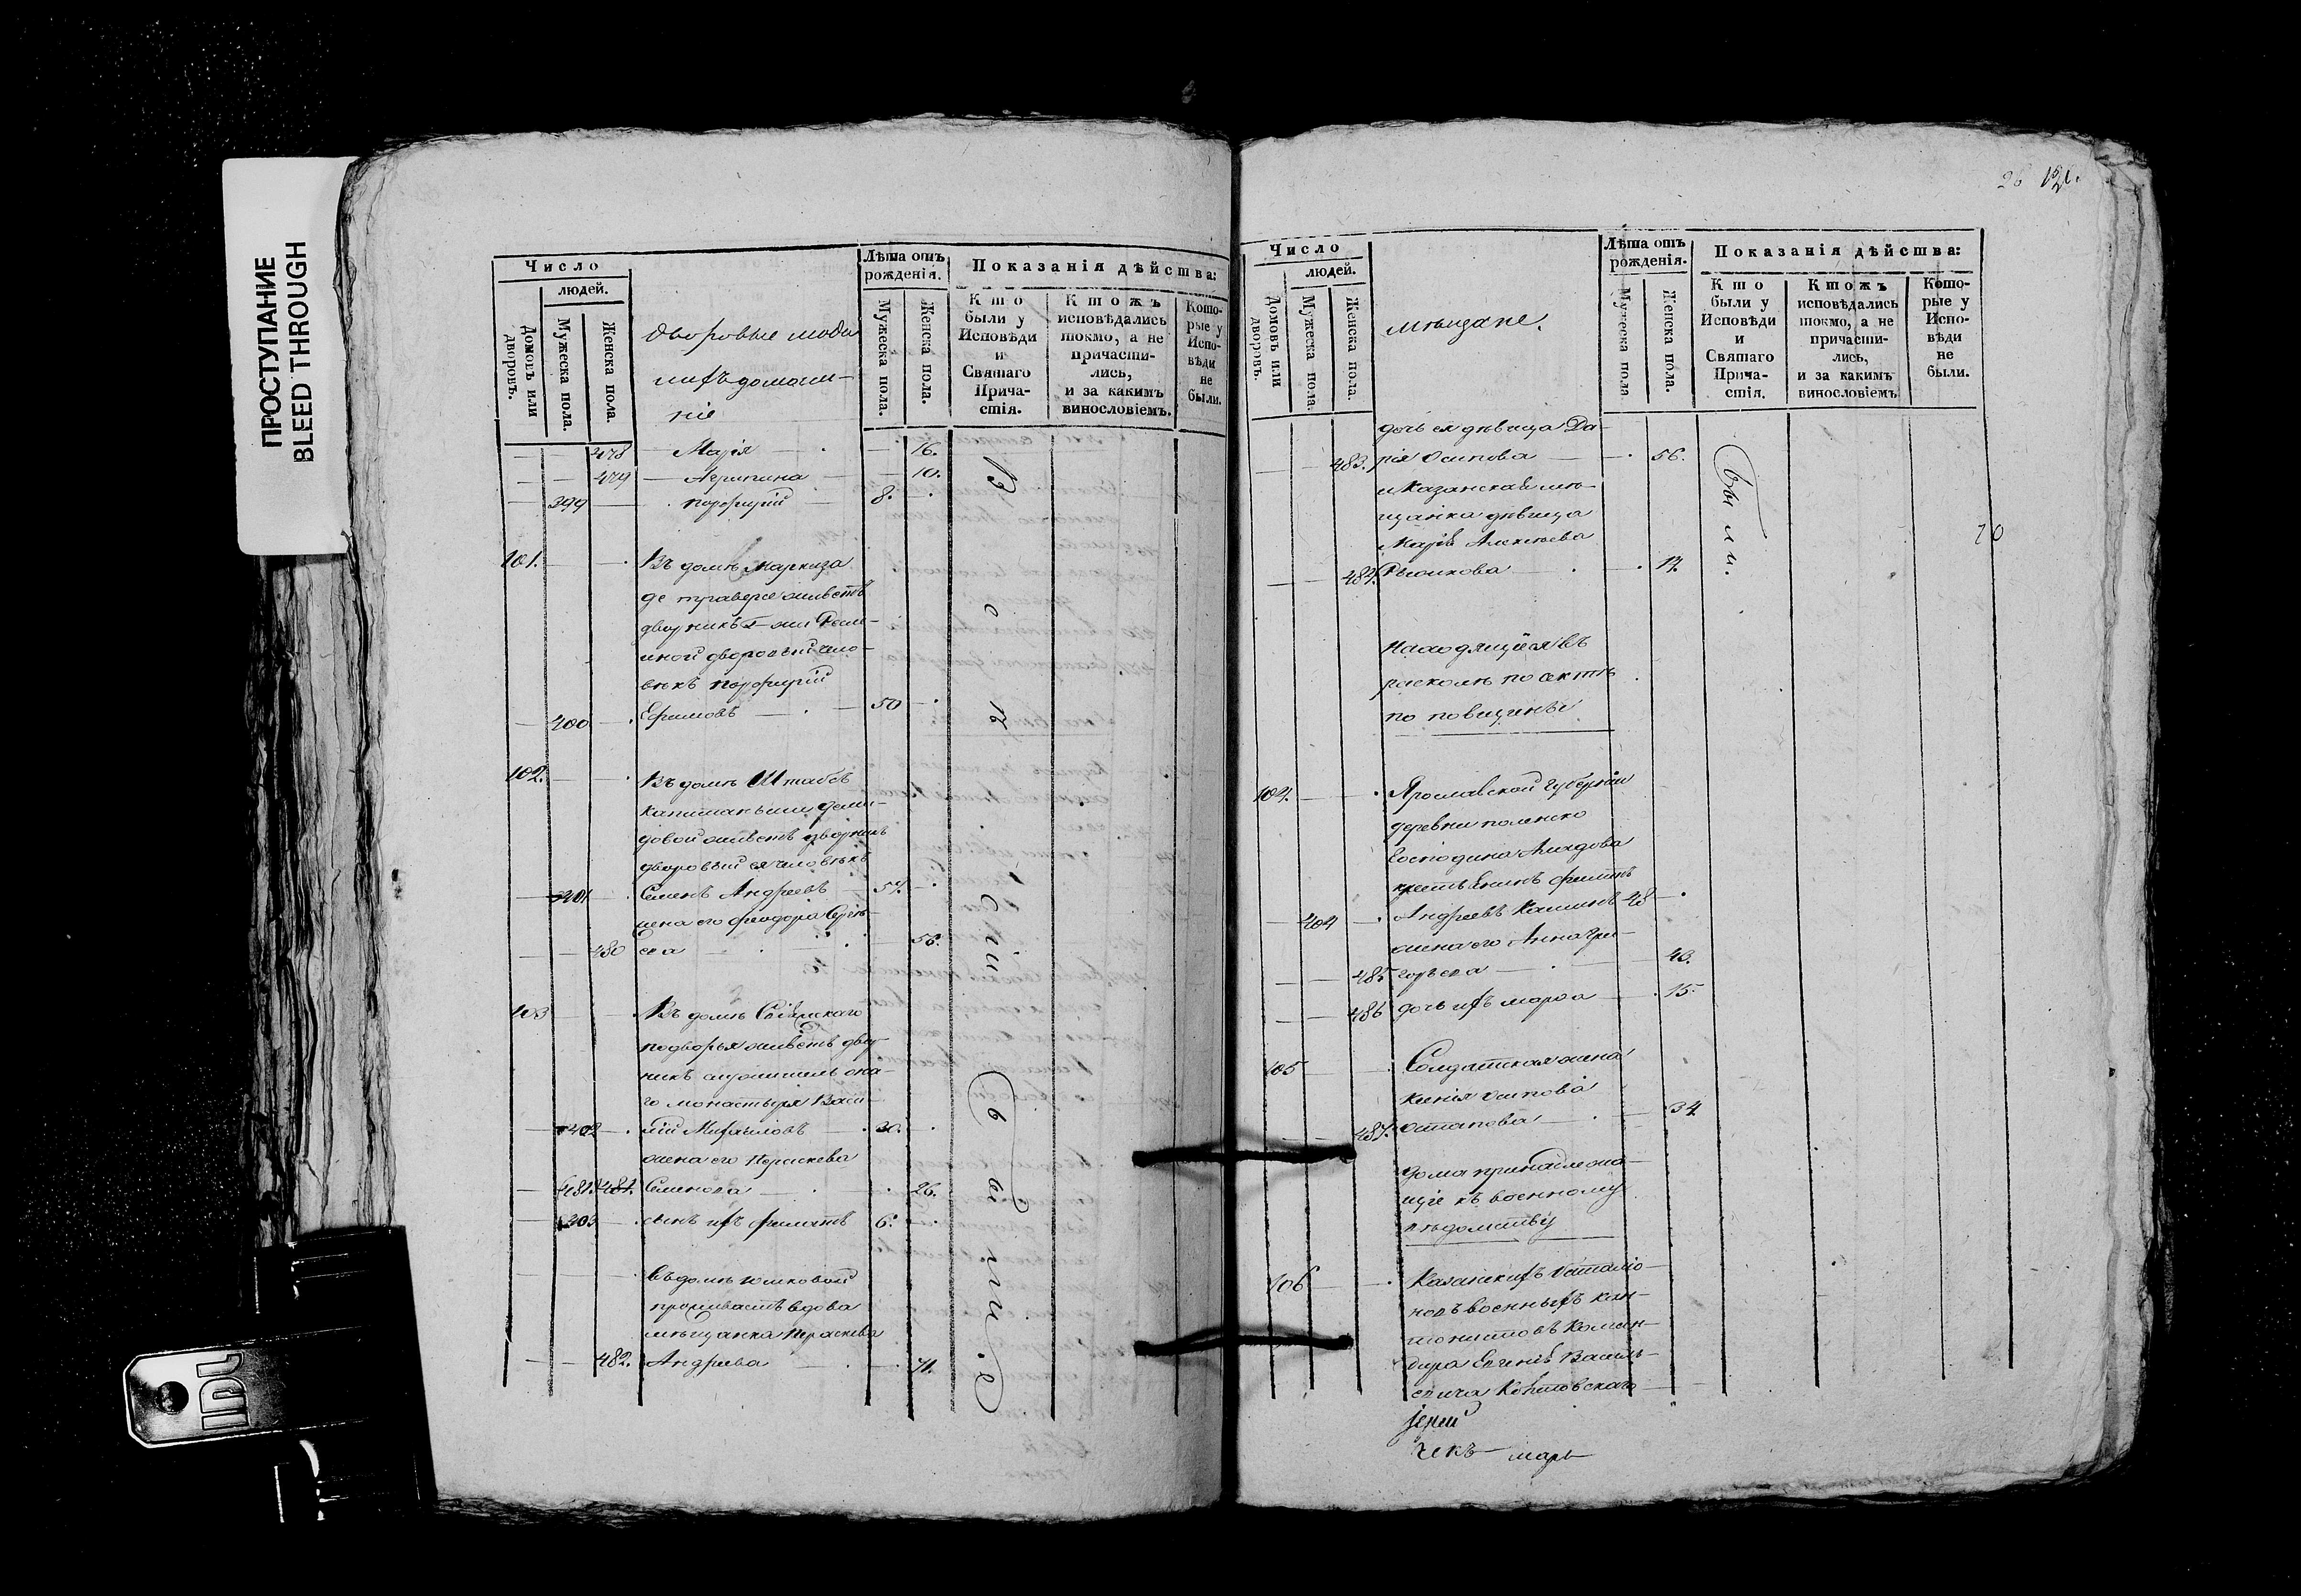 ПРОСТУПАНИЕ
BLEED THROUGH
Число
людей.
Домовъ или дворовъ.
Мужеска пола.
Женска пола.
Дворовые люди
ихъ домаш-
ніе
Лѣта отъ рожденія.
Мужеска пола.
Женска пола.
Показанія дѣйства:
Кто были у Исповѣди и Святаго Прича-стія.
Ктожъ исповѣдались токмо, а не причасти-лись, и за какимъ винословіемъ.
Кото-рые у Испо-вѣди не были.
478 Марія 16.
479 Агрипина 10.
399 Порфирій 8.
101. Въ домѣ Маркиза
де траверсе живетъ
дворникъ Г-жи
дворовый чело-
вѣкъ Порфирій
400 Ефимовъ 50
102. Въ домѣ Штабсъ
Капитанши Деми-
довой живетъ дворникъ
дворовый ея человѣкъ
401 Семенъ Андреевъ 57.
жена его Феодора Сергѣ-
480 ева 56.
103 Въ домѣ
подворья живетъ двор-
никъ служитель она-
го монастыря Васи-
402 лій Михайловъ 30.
жена его Параскева
481. 481. Семенова 26.
403 сынъ ихъ Филиппъ 6.
Въ домѣ Юшковой
проживаетъ вдова
мѣщанка Параскева
482. Андреева 71.
26
Число
людей.
Домовъ или дворовъ.
Мужеска пола.
Женска пола.
мѣщане.
Лѣта отъ рожденія.
Мужеска пола
Женска пола.
Показанія дѣйства:
Кто были у Исповѣди и Святаго Прича-стія.
Ктожъ исповѣдались токмо, а не причасти-лись, и за какимъ винословіемъ
Кото-рые у Испо-вѣди не были.
дочь ея дѣвица Да-
483. рія Осипова 56.
и Казанская мѣ-
щанка дѣвица
Марія Алексѣева
484.
были.
Находящіеся въ
расколѣ по сектѣ
по повщинѣ
104. Ярославской Губерніи
деревни
Господина
крестьянинъ Филипъ
404 Андреевъ 48
жена его Анна Гри-
485 горьева 40.
486 дочь ихъ Марфа 15.
105 Солдатская жена
Ксенія Осипова
487. Остапова 34
Дома принадлежа-
щіе къ военному
вѣдомству
106 Казанскихъ баталіо-
новъ военныхъ кан-
тонистовъ Коман-
дира Евгенія Василь-
евича
Іерей